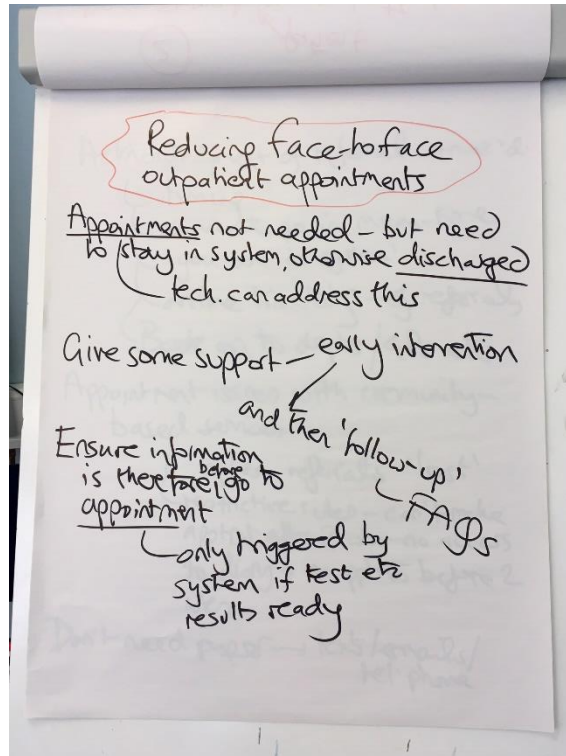 Reducing face-to-face
outpatient appointments
Appointments not needed – but need
to stay in system, otherwise discharged
tech. can address this
Give some support – early intervention
and then 'follow-up'
FAQs
Ensure information
is there before I go to
appointment
only triggered by
system if test etc
results ready